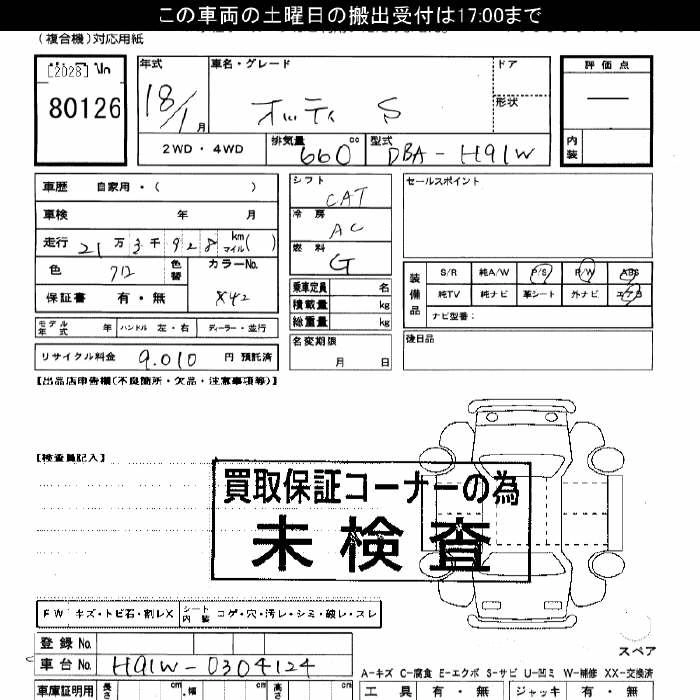 この車両の土曜日の搬出受付は17:00まで
(複合機)対応用紙
[2028] No
80126
年式
18/1
月
車名・グレード
オッティ S
ドア
形状
評価点
―
内装
2WD・4WD
排気量
660
cc
型式
DBA-H91W
車歴 自家用・( )
車検 年 月
走行 21万3千928 km マイル( )
色 フワ
色替
カラーNo.
X42
保証書 有・無
シフト
CAT
冷房
AC
燃料
G
乗車定員 名
積載量 kg
総重量 kg
セールスポイント
装備品
S/R 純A/W P/S P/W ABS
純TV 純ナビ 革シート 外ナビ エアB
ナビ型番:
モデル年式 年 ハンドル 左・右 ディーラー・並行
リサイクル料金 9.010 円 預託済
名変期限
月 日
後日品
【出品店申告欄(不良箇所・欠品・注意事項等)】
【検査員記入】
買取保証コーナーの為
未検査
FW キズ・トビ石・割レX
シート内装 コゲ・穴・汚レ・シミ・破レ・スレ
スペア
登録No.
車台No. H91W-0304124
A-キズ C-腐食 E-エクボ S-サビ U-凹ミ W-補修 XX-交換済
車庫証明用 長さ cm 幅 cm 高さ cm
工具 有・無 ジャッキ 有・無